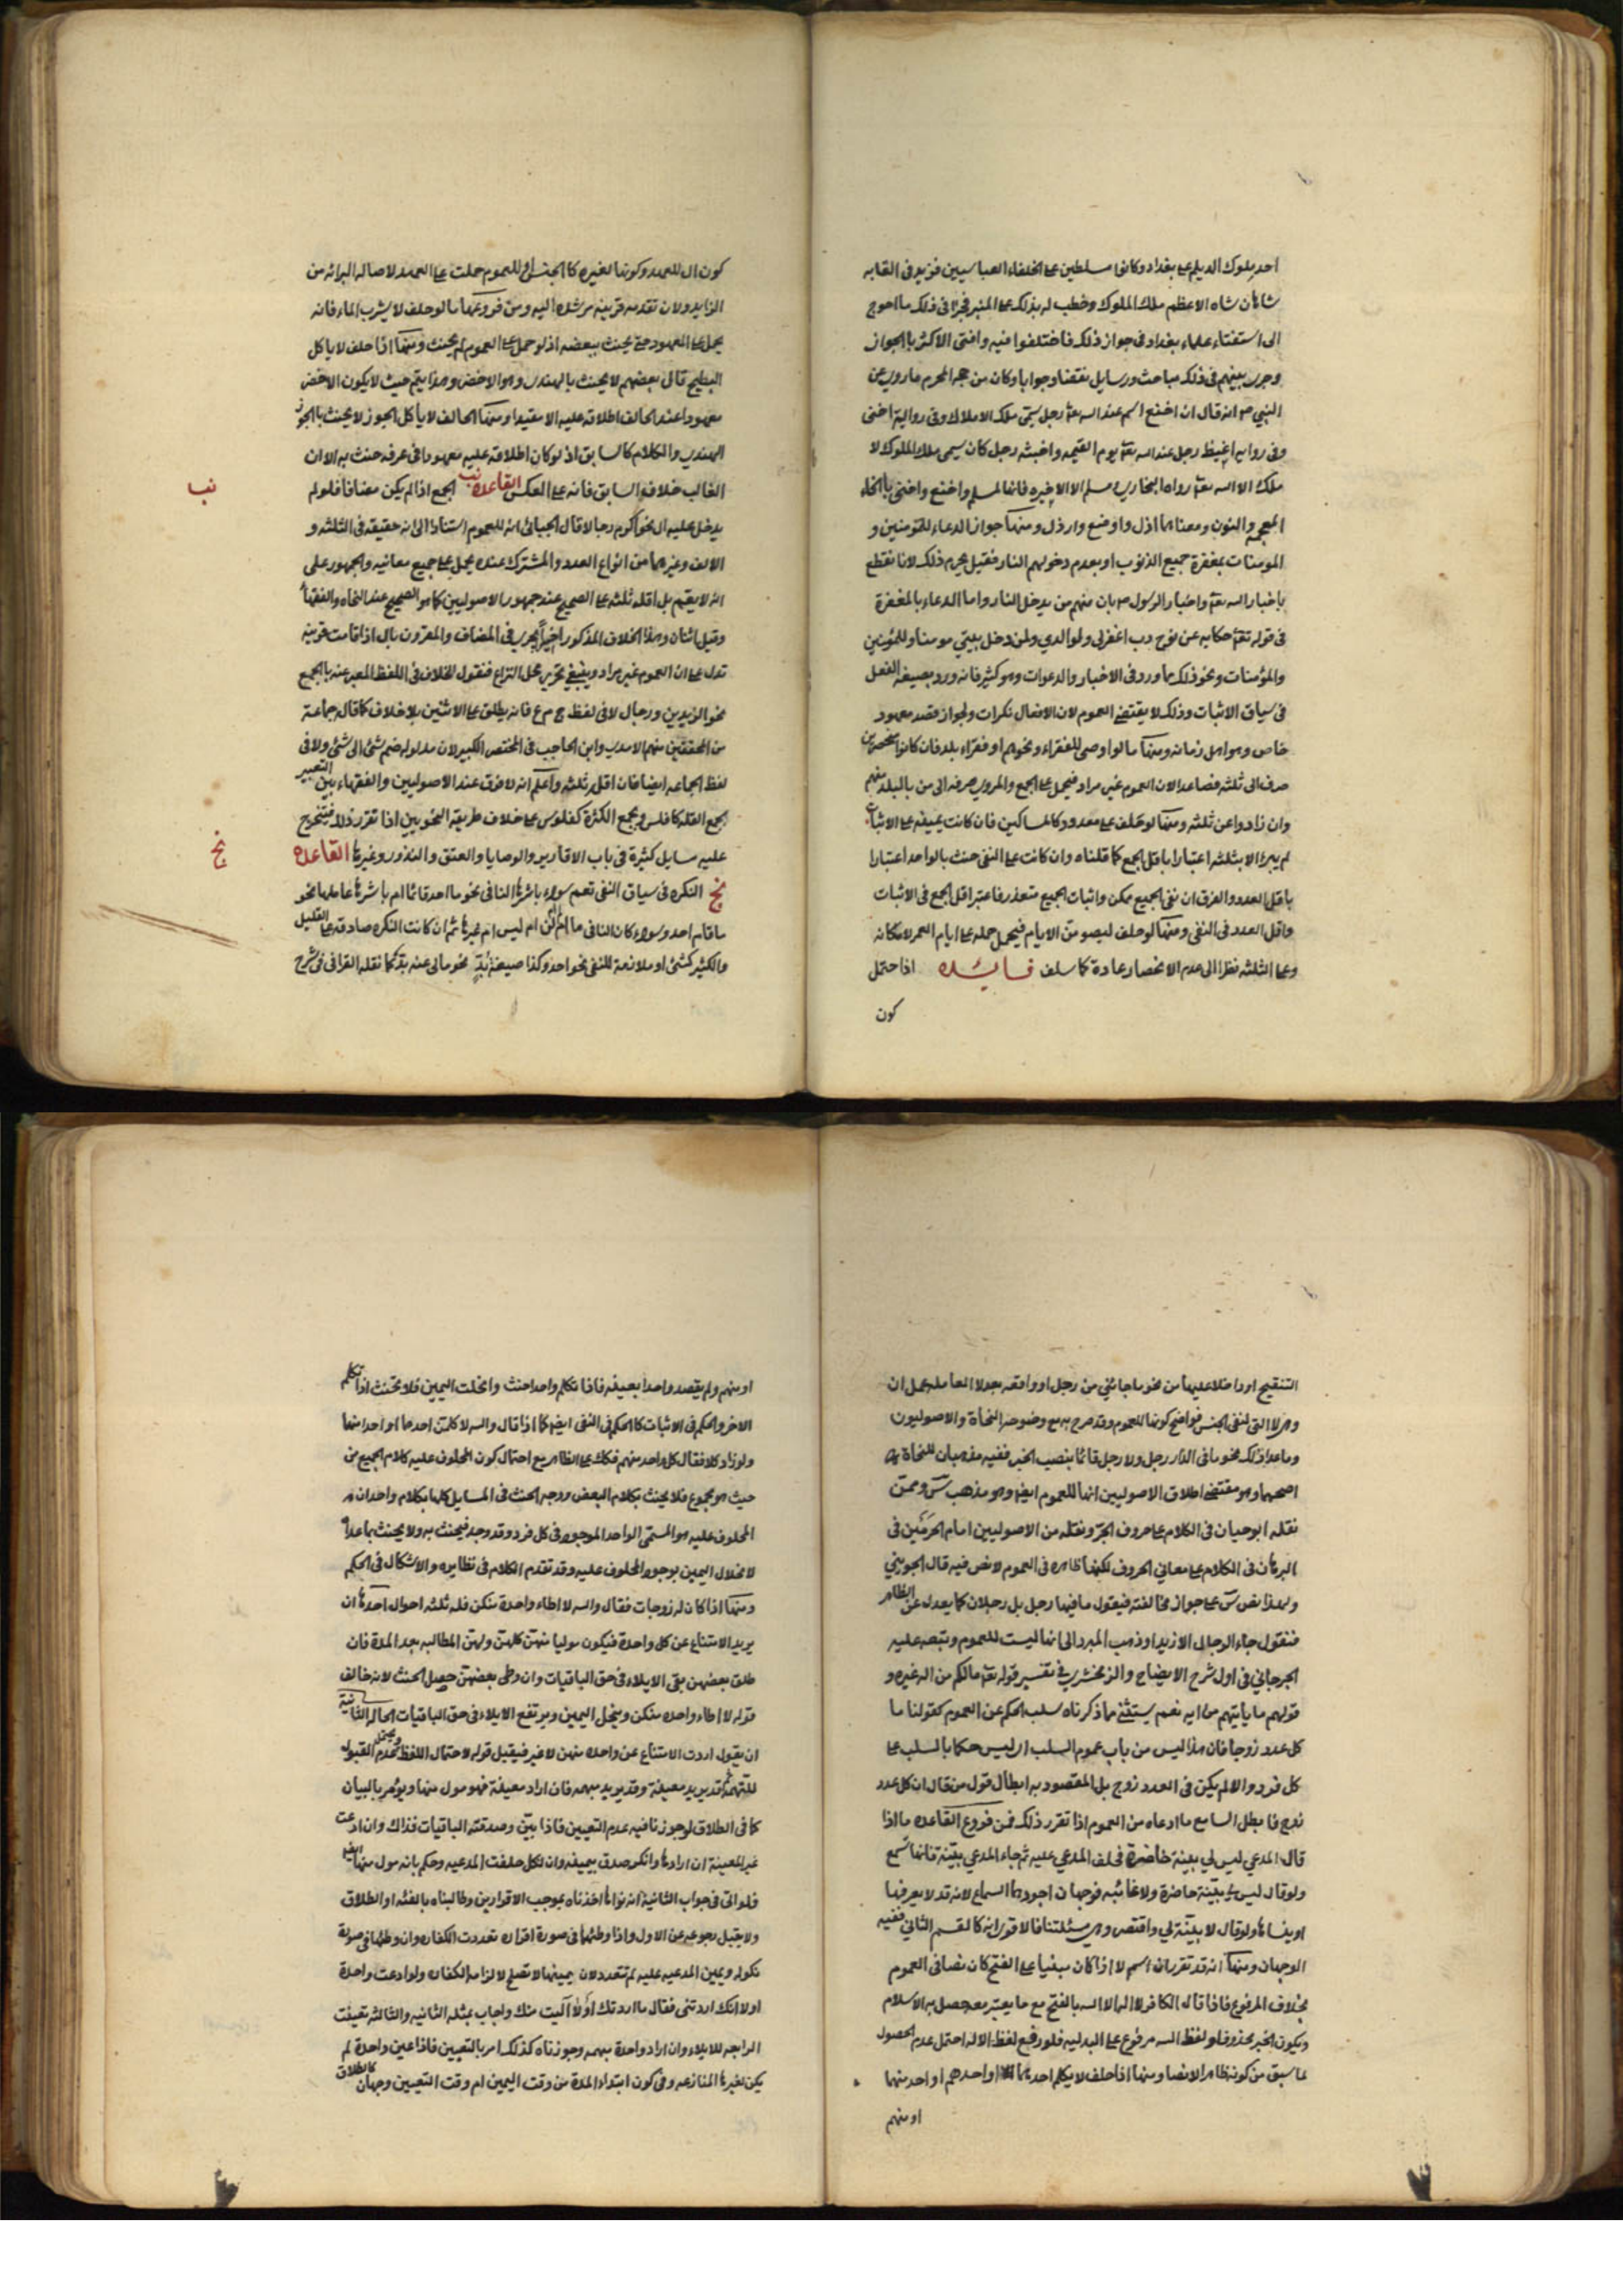 احد ملوك الديلم على بغداد وكانوا مسلطين على الخلفاء العباسيين فزيد في القابه
شاهان شاه الاعظم ملك الملوك وخطب له بذلك على المنبر فجرى في ذلك ما احوج
الى استفتاء علماء بغداد في جواز ذلك فاختلفوا فيه وافتى الاكثر بالجواز
وجرى بينهم في ذلك مباحث ورسايل نقضا وجوابا وكان من حجه المحرم ما روي عن
النبي ص انه قال ان اخنع اسم عند الله تعـ رجل يسمّى ملك الاملاك وفي رواية اخنى
وفي روايه اغيظ رجل عند الله تعـ يوم القيمه واخبثه رجل كان يسمى ملك الملوك لا
ملك الا الله تعـ رواه البخاري ومسلم الا الاخيره فانها لمسلم واخنع واخنى بالخاء
المعجمه والنون ومعناهما اذل واوضع وارذل ومنها جواز الدعاء للمؤمنين و
المومنات بمغفرة جميع الذنوب او بعدم دخولهم النار فقيل يحرم ذلك لانا نقطع
باخبار الله تعـ واخبار الرسول ص بان منهم من يدخل النار واما الدعاء بالمغفرة
في قوله تعـ حكايه عن نوح رب اغفر لي ولوالدي ولمن دخل بيتي مومنا وللمؤمنين
والمؤمنات ونحو ذلك مما ورد في الاخبار والدعوات وهو كثير فانه ورد بصيغه الفعل
في سياق الاثبات وذلك لا يقتضى العموم لان الافعال نكرات ولجواز قصد معهود
خاص وهو اهل زمانه ومنها ما لو اوصى للفقراء ونحوهم او فقراء بلد فان كانوا منحصرين
صرف الى ثلثه فصاعدا لان العموم غير مراد فيحمل على الجمع والمروي صرفه الى من بالبلد منهم
وان زادوا عن ثلثه ومنها لو حلف على معدود كالمساكين فان كانت يمينه على الاثبات
لم يبرا الا بثلثه اعتبارا باقل الجمع كما قلناه وان كانت على النفى حنث بالواحد اعتبارا
باقل العدد والفرق ان نفى الجميع ممكن واثبات الجميع متعذر فاعتبر اقل الجمع في الاثبات
واقل العدد في النفى ومنها لو حلف ليصومنّ الايام فيحمل حمله على ايام العمر لامكانه
وعلى الثلثه نظرا الى عدم الانحصار عادة كما سلف فائده اذا احتمل
كون
كون ال للعهد وكونها لغيره كالجنس او للعموم حملت على العهد لاصاله البرائه من
الزايد ولان تقدمه قرينه مرشده اليه ومن فروعها ما لو حلف لا يشرب الماء فانه
يحمل على المعهود حتى يحنث ببعضه اذ لو حمل على العموم لم يحنث ومنها اذا حلف لا ياكل
البطيخ قال بعضهم لا يحنث بالهندي وهو الاخضر وهذا يتم حيث لا يكون الاخضر
معهودا عند الحالف اطلاقه عليه الا مقيدا ومنها الحالف لا يأكل الجوز لا يحنث بالجوز
الهندي والكلام كالسابق اذ لو كان اطلاقه عليه معهودا في عرفه حنث به الا ان
الغالب خلافه والسابق فانه على العكس القاعده نب الجمع اذا لم يكن مضافا فلو لم
نب
يدخل عليه ال نحو اكرم رجالا قال الجبائي انه للعموم استنادا الى انه حقيقه في الثلثه و
الالف وغيرهما من انواع العدد والمشترك عنده يحمل على جميع معانيه والجمهور على
انه لا يعم بل اقله ثلثه على الصحيح عند جمهور الاصوليين كما هو الصحيح عند النحاه والفقهاء
وقيل اثنان وهذا الخلاف المذكور اخيرا يجري في المضاف والمعرف بال اذا قامت قرينه
تدل على ان العموم غير مراد وينبغي تحرير محل النزاع فنقول الخلاف في اللفظ المعبر عنه بالجمع
نحو الزيدين ورجال لا في لفظ ج م ع فانه يطلق على الاثنين بلا خلاف كما قاله جماعة
من المحققين منهم الامدي وابن الحاجب في المختصر الكبير لان مدلوله ضم شئ الى شئ ولا في
لفظ الجماعه ايضا فان اقله ثلثه واعلم انه لا فرق عند الاصوليين والفقهاء بين التعبير
بجمع القله كافلس وبجمع الكثرة كفلوس على خلاف طريقه النحويين اذا تقرر ذلك فيتخرج
عليه مسايل كثيرة في باب الاقارير والوصايا والعتق والنذور وغيرها القاعده
نج
نج النكره في سياق النفى تعم سواء باشرها النافي نحو ما احد قائما ام باشرها عاملها نحو
ما قام احد وسواء كان النافي ما ام لم ام لن ام ليس ام غيرها ثم ان كانت النكره صادقه على القليل
والكثير كشئ او ملازمة للنفى نحو احد وكذا صيغة بُدّ نحو ما لي عنه بدّ كما نقله القرافي في شرح
التنقيح او داخلا عليها من نحو ما جائني من رجل او واقعه بعد لا العامله عمل ان
وهي لا التي لنفى الجنس فواضح كونها للعموم وقد صرح به مع وضوحه النحاة والاصوليون
وما عدا ذلك نحو ما في الدار رجل ولا رجل قائما بنصب الخبر ففيه مذهبان للنحاة
اصحهما وهو مقتضى اطلاق الاصوليين انها للعموم ايضا وهو مذهب س وممن
نقله ابو حيان في الكلام على حروف الجرّ ونقله من الاصوليين امام الحرمَين في
البرهان في الكلام على معاني الحروف لكنها ظاهره في العموم لا نص فيه قال الجويني
ولهذا نص س على جواز مخالفته فيقول ما فيها رجل بل رجلان كما يعدل عن الظاهر
فنقول جاء الرجال الا زيدا وذهب المبرد الى انها ليست للعموم وتبعه عليه
الجرجاني في اول شرح الايضاح والزمخشري في تفسير قوله تعـ ما لكم من اله غيره و
قولهم ما يأتيهم من ايه نعم يستثنى مما ذكرناه سلب الحكم عن العموم كقولنا ما
كل عدد زوجا فان هذا ليس من باب عموم السلب اي ليس حكما بالسلب على
كل فرد والا لم يكن في العدد زوج بل المقصود به ابطال قول من قال ان كل عدد
زوج فابطل السامع ما ادعاه من العموم اذا تقرر ذلك فمن فروع القاعده ما اذا
قال المدعي ليس لي بينة حاضرة فحلف المدعي عليه ثم جاء المدعي ببينة فانها تسمع
ولو قال ليس لي بيّنة حاضرة ولا غائبه فوجهان اجودهما السماع لانه قد لا يعرفها
او ينساها ولو قال لا بيّنة لي واقتصر وهي مسئلتنا فالاقوى انه كالقسم الثاني ففيه
الوجهان ومنها انه قد تقرر ان اسم لا اذا كان مبنيا على الفتح كان نصا في العموم
بخلاف المرفوع فاذا قال الكافر لا اله الا الله بالفتح مع ما يعتبر معه حصل به الاسلام
ويكون الخبر محذوفا ولفظ الله مرفوع على البدليه فلو رفع لفظ الاله احتمل عدم الحصول
لما سبق من كونه ظاهرا لا نصا ومنها اذا حلف لا يكلم احدهما او احدهم او احد منهما
او منهم
او منهم ولم يقصد واحدا بعينه فاذا تكلم واحدا حنث وانحلت اليمين فلا يحنث اذا تكلم
الاخر والحكم في الاثبات كالحكم في النفى ايضا كما اذا قال والله لا كلمن احدهما او احدا منهما
ولو زاد كلا فقال كل واحد منهم فكك على الظاهر مع احتمال كون المحلوف عليه كلام الجميع من
حيث هو مجموع فلا يحنث بكلام البعض ووجه الحنث في المسايل كلها بكلام واحد ان
المحلوف عليه هو المسمّى الواحد الموجود في كل فرد وقد وجد فيحنث به ولا يحنث بما عداه
لانحلال اليمين بوجود المحلوف عليه وقد تقدم الكلام في نظايره والاشكال في الحكم
ومنها اذا كان له زوجات فقال والله لا اطاء واحدة منكن فله ثلثه احوال احدها ان
يريد الامتناع عن كل واحدة فيكون موليا منهن كلهن ولهن المطالبه بعد المدة فان
طلق بعضهن بقى الايلاء في حق الباقيات وان وطى بعضهن حصل الحنث لانه خالف
قوله لا اطاء واحده منكن وينحل اليمين ويرتفع الايلاء في حق الباقيات الحاله الثانية
ان يقول اردت الامتناع عن واحده منهن لا غير فيقبل قوله لاحتمال اللفظ ويحتمل عدم القبول
للتهمة ثم قد يريد معينة وقد يريد مبهمه فان اراد معينة فهو مول منها ويؤمر بالبيان
كما في الطلاق لو جوزنا فيه عدم التعيين فاذا بيّن وصدقته الباقيات فذاك وان ادعت
غير المعينة انه ارادها وانكر صدق بيمينه وان نكل حلفت المدعيه وحكم بانه مول منها ايضا
فلو اتى في جواب الثانية انه نواها اخذناه بموجب الاقرارين وطالبناه بالفئه او الطلاق
ولا يقبل رجوعه عن الاول واذا وطئهما في صورة اقراره تعددت الكفاره وان وطئهما في صورة
نكوله ويمين المدعيه عليه لم تتعدد لان يمينها لا تصلح لالزامه الكفاره ولو ادعت واحدة
اولا انك اردتني فقال ما اردتك او لا آليت منك واجاب بمثله الثانيه والثالثه تعينت
الرابعه للايلاء وان اراد واحدة مبهمه وجوزناه كذلك امر بالتعيين فاذا عين واحدة لم
يكن لغيرها المنازعه وفي كون ابتداء المدة من وقت اليمين ام وقت التعيين وجهان كالطلاق